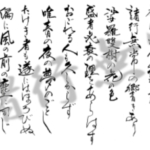 諸行無常の響きあり
沙羅雙樹の花の色
盛者必衰の理をあらはす
おごれる人も久しからず
唯春の夜の夢のごとし
たけき者も遂にはほろびぬ
偏に風の前の塵に同じ